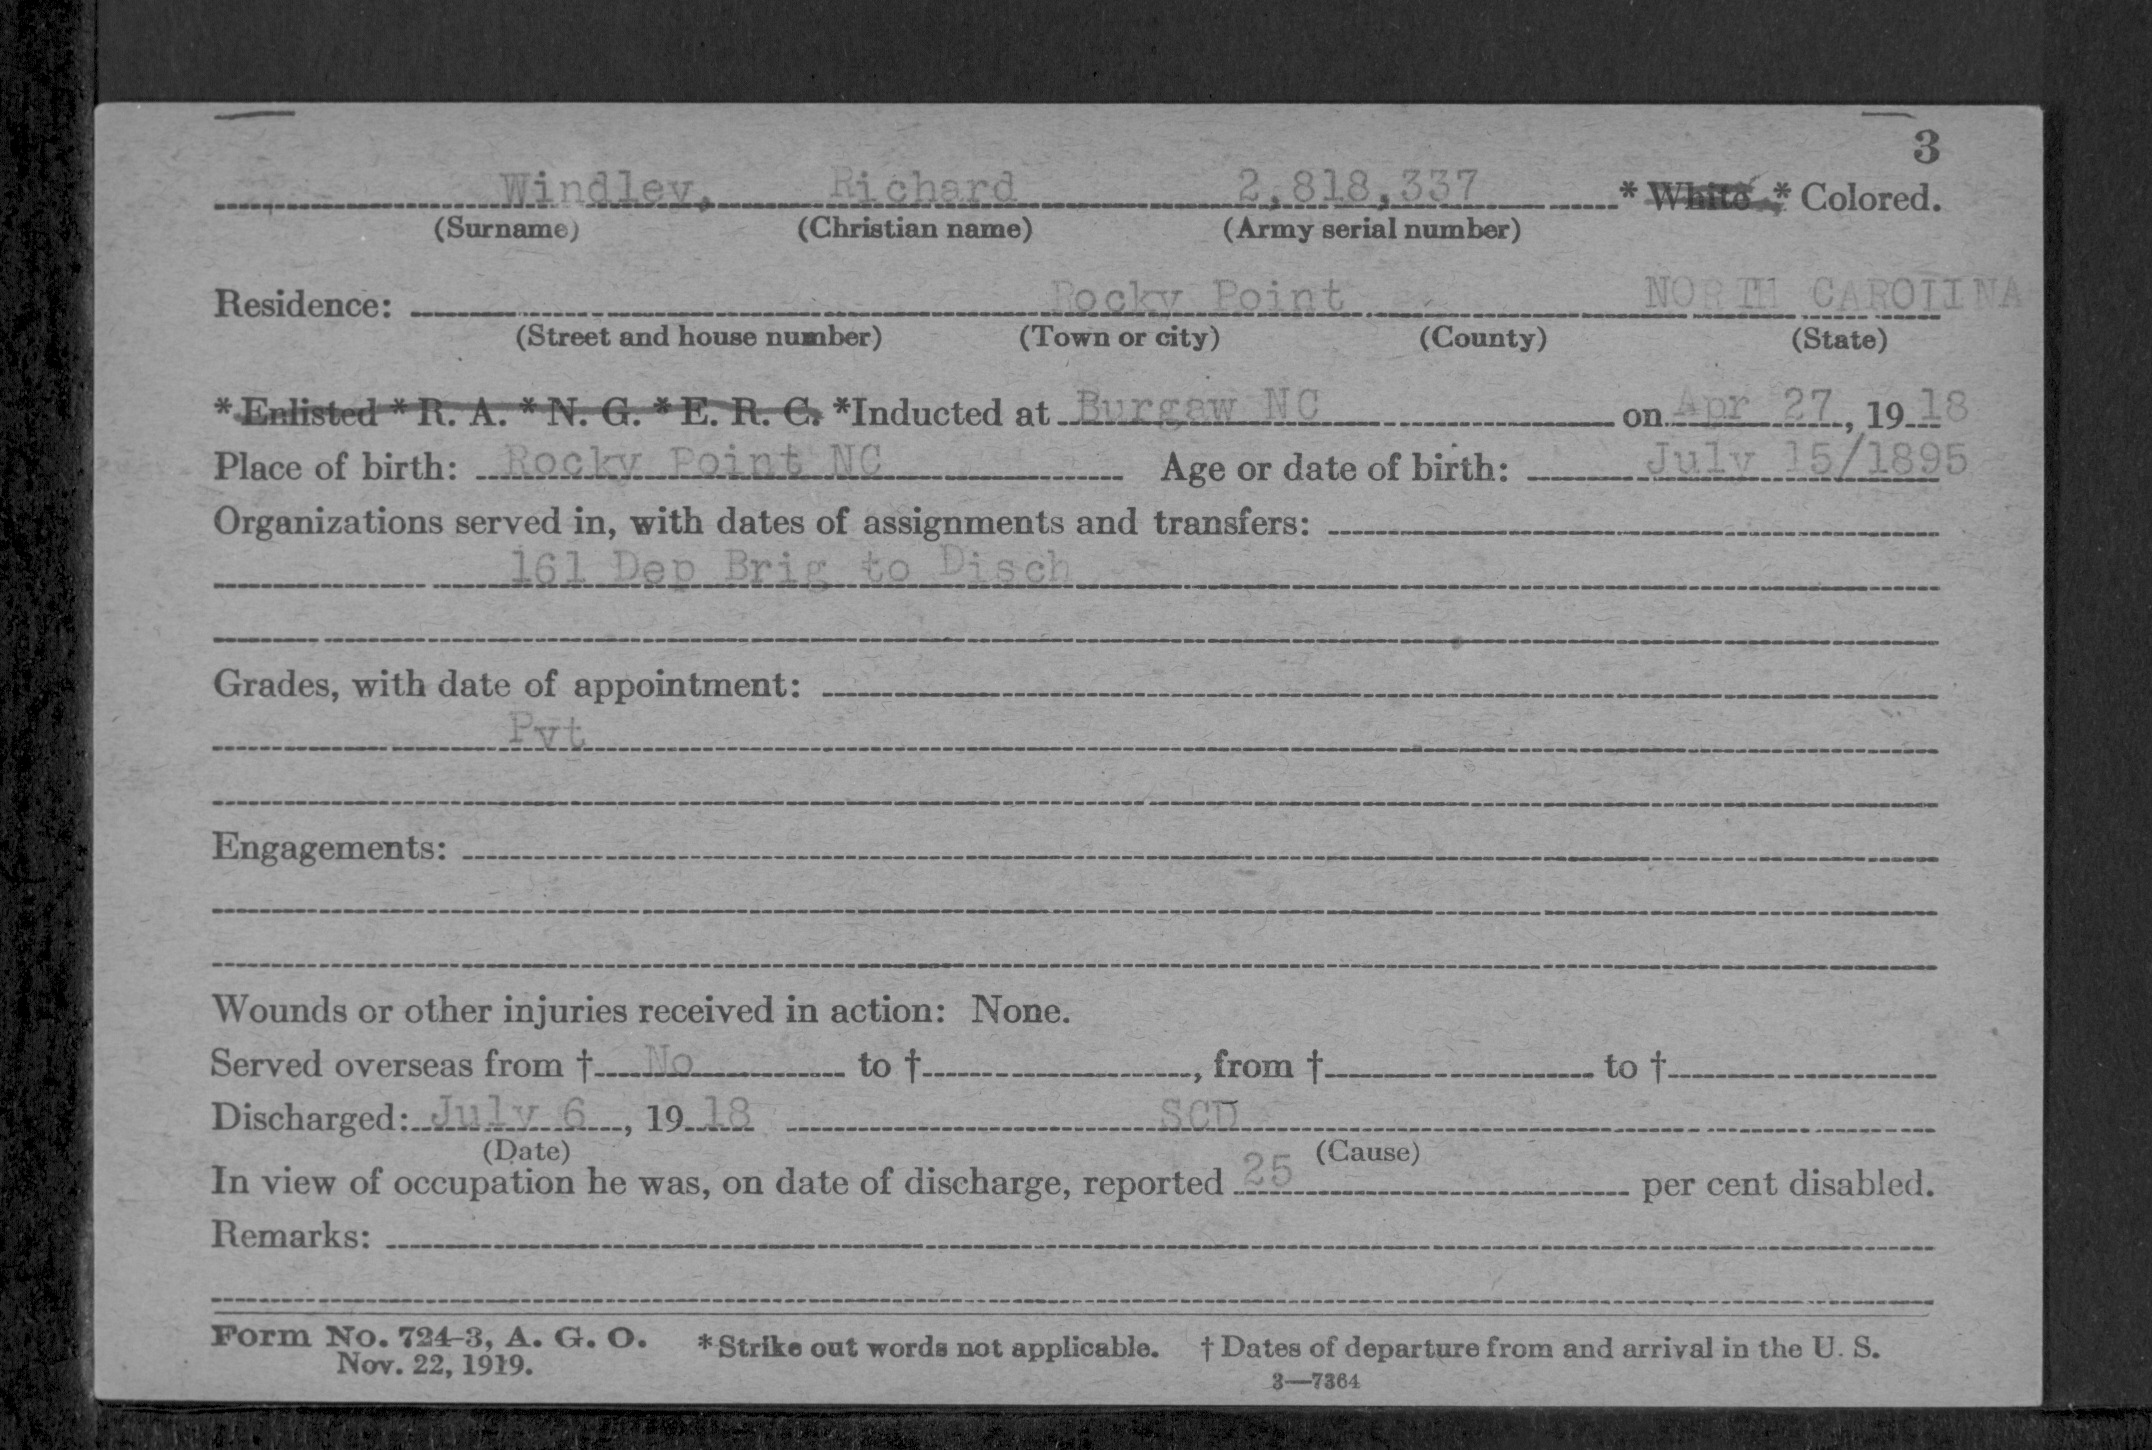 3
Windley, Richard 2,818,337 * White * Colored.
(Surname) (Christian name) (Army serial number)
Residence: Rocky Point NORTH CAROLINA
(Street and house number) (Town or city) (County) (State)
* Enlisted * R. A. * N. G. * E. R. C. *Inducted at Burgaw NC on Apr 27, 1918
Place of birth: Rocky Point NC Age or date of birth: July 15/1895
Organizations served in, with dates of assignments and transfers:
161 Dep Brig to Disch
Grades, with date of appointment:
Pvt
Engagements:
Wounds or other injuries received in action: None.
Served overseas from † No to †, from † to †
Discharged: July 6, 1918 SCD
(Date) (Cause)
In view of occupation he was, on date of discharge, reported 25 per cent disabled.
Remarks:
Form No. 724-3, A. G. O. * Strike out words not applicable. † Dates of departure from and arrival in the U. S.
Nov. 22, 1919. 3—7364